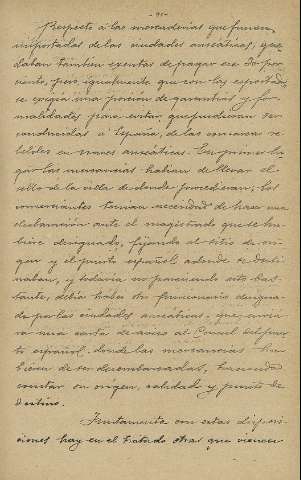 -91-
Respecto á las mercaderías que fueran
importadas de las ciudades anseáticas, que
daban también exentas de pagar ese 30 por
ciento, pero, igualmente que con las exportadas
se exigía una porción de garantías y for
malidades para evitar que pudieran ser
conducidas á España, de las comarcas re
beldes en naves anseáticas. En primer lu
gar las mercancías habían de llevar el
sello de la villa de donde procedieran; los
comerciantes tenían necesidad de hacer una
declaración ante el magistrado que se hu
biere designado, fijando el sitio de ori
gen y el puerto español adonde se desti
naban, y todavía no pareciendo esto bas
tante, debía haber un funcionario designa
do por las ciudades anseáticas, que envia
ra una carta de aviso al Consul del puer
to español, donde las mercancías hu
bieran de ser desembarcadas, haciendo
constar su origen, calidad y punto de
destino.
Juntamente con estas disposi
ciones hay en el tratado otras que vienen